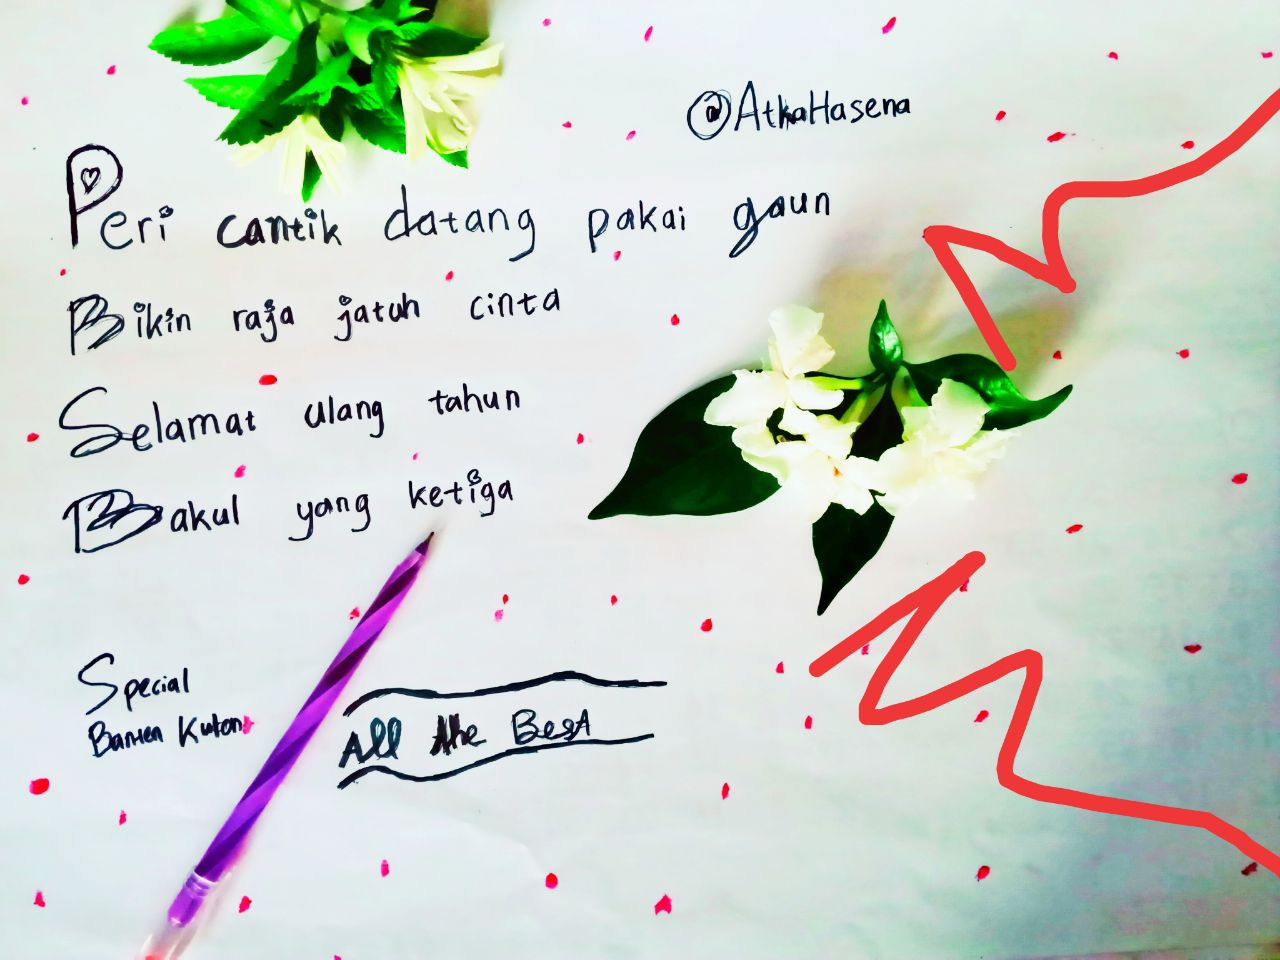 @AtkaHasena
Peri cantik datang pakai gaun
Bikin raja jatuh cinta
Selamat ulang tahun
Bakul yang ketiga
Special
Banten Kulon
All the Best